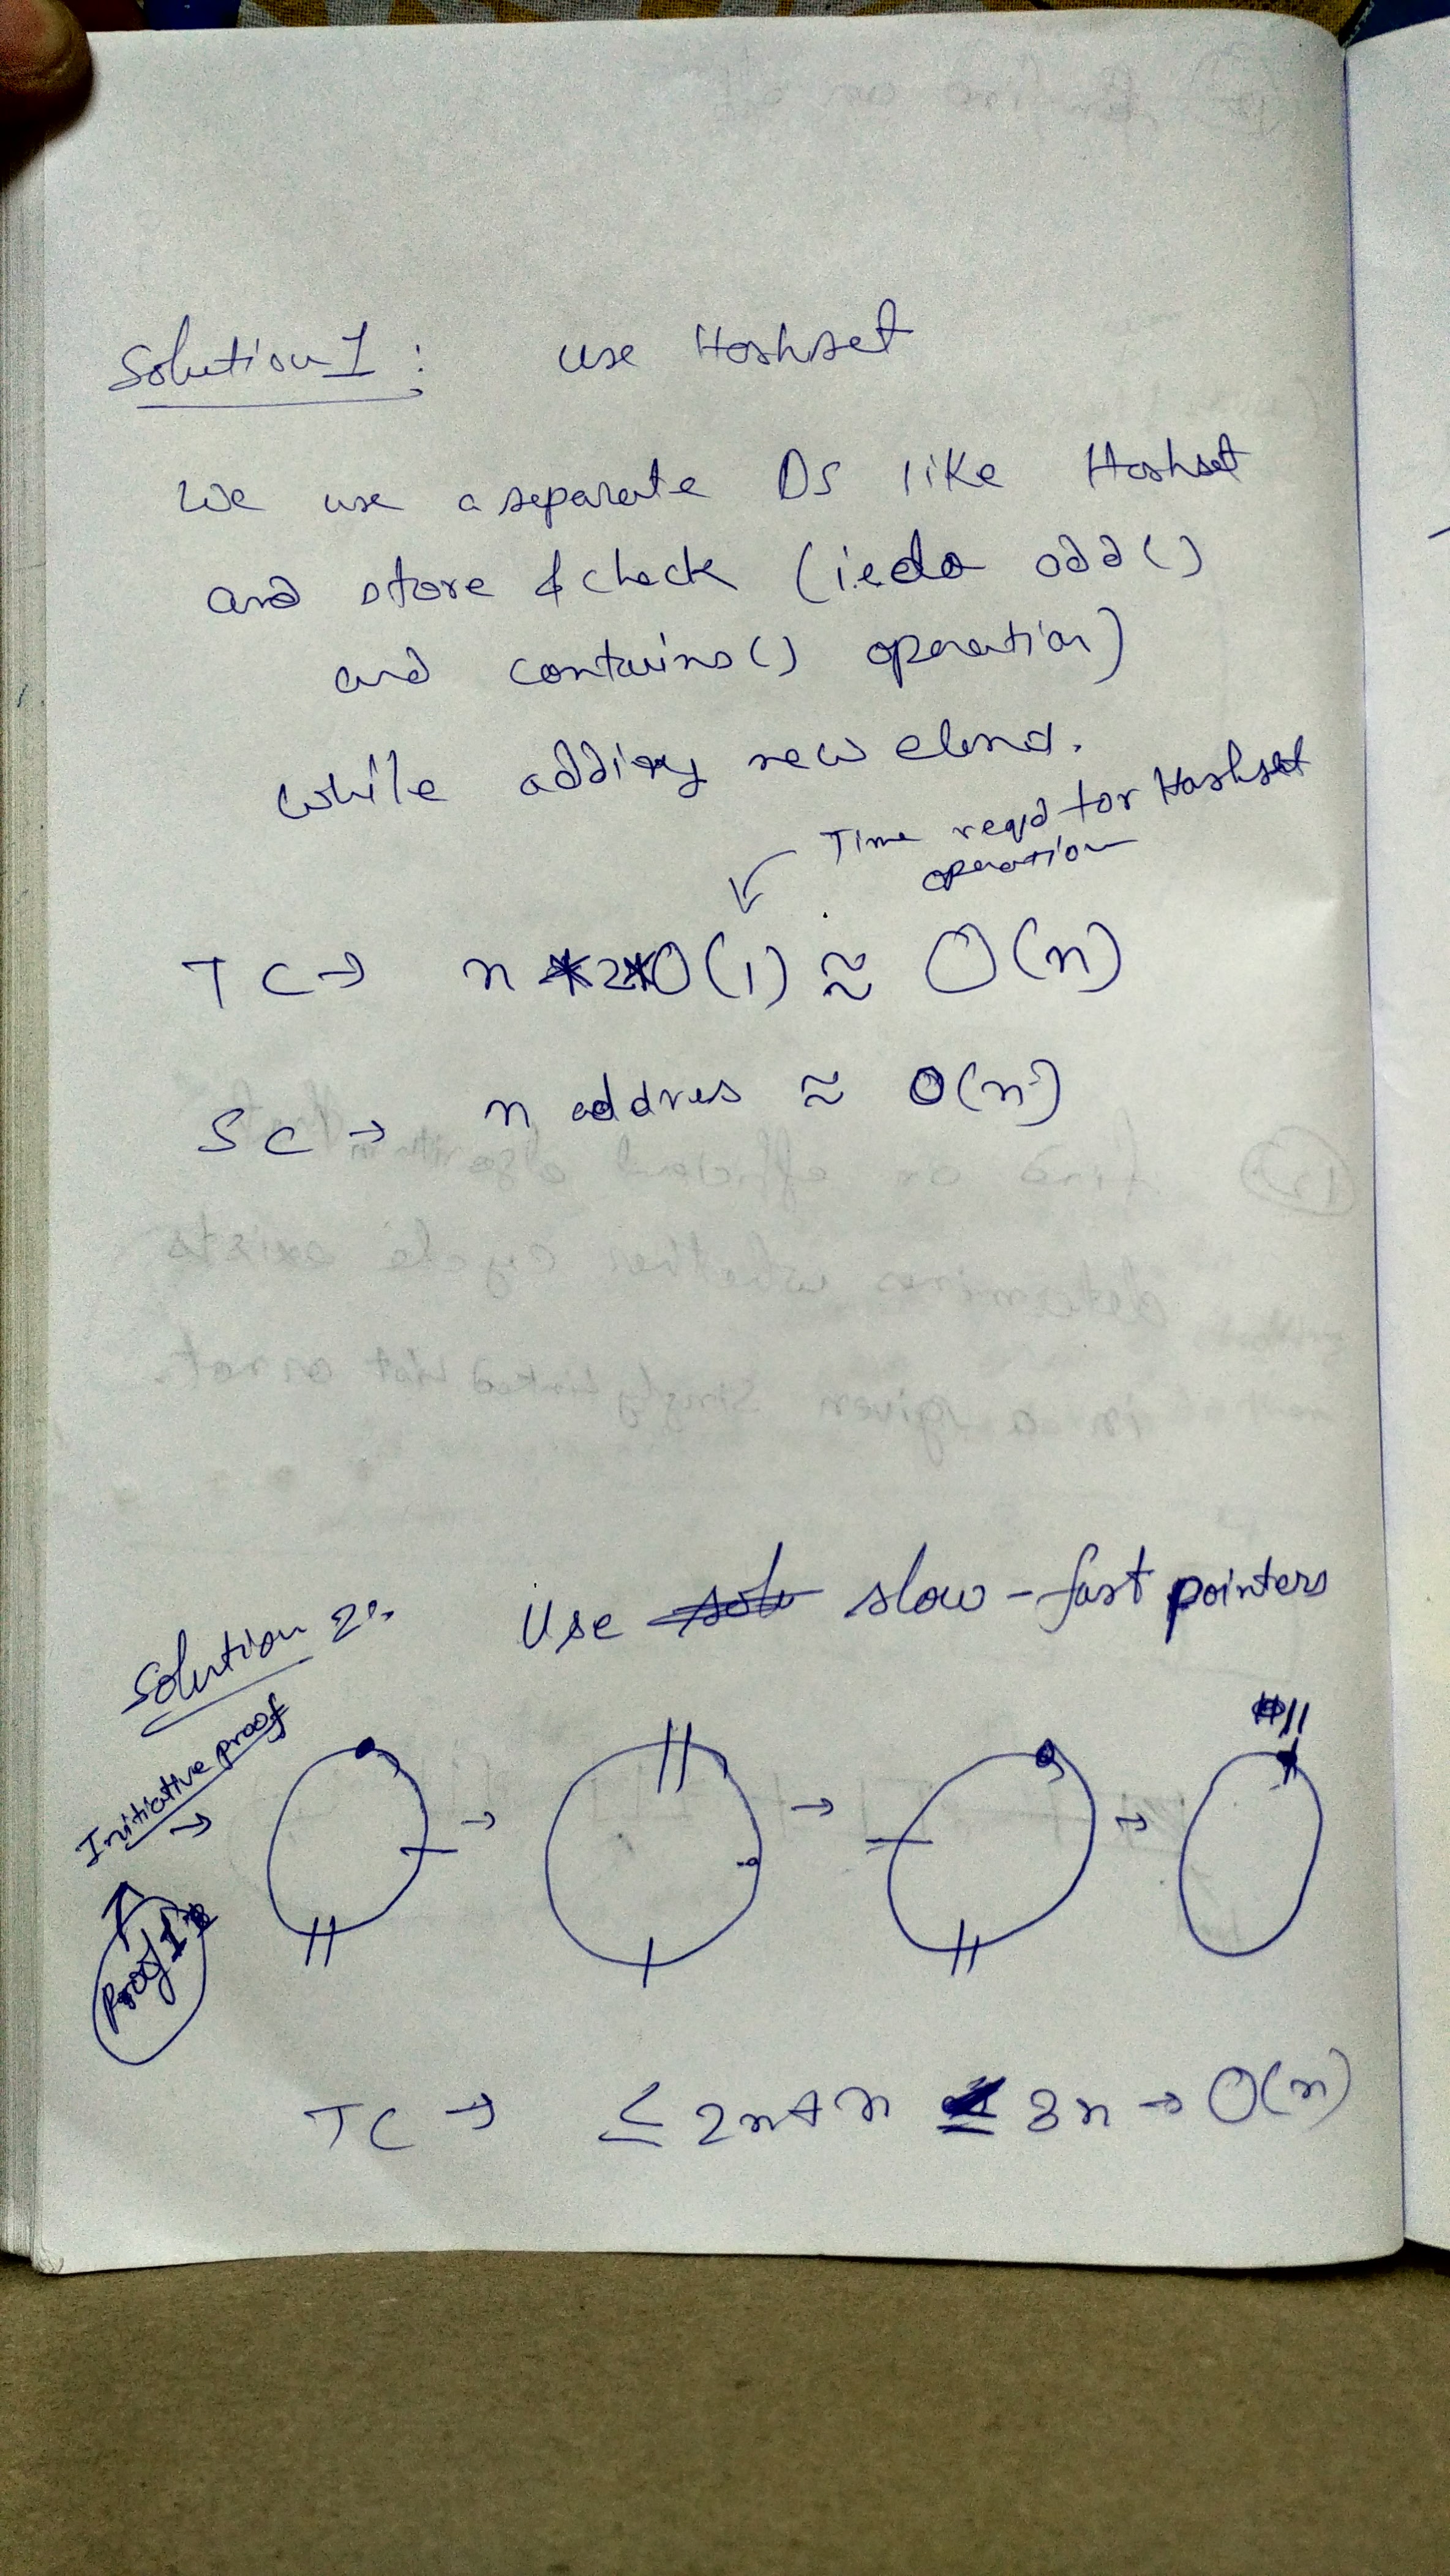 Solution 1 : use Hashset
We use a separate DS like Hashset
and store & check (i.e do add()
and contains() operation)
while adding new
Time reqd for Hashset
operation
TC → n * 2 * O(1) ≈ O(n)
SC → n addres ≈ O(n)
Solution 2: Use slow-fast pointers
Initiative proof →
Proof 1
→ → →
TC → ≤ 2n + n ≤ 3n → O(n)